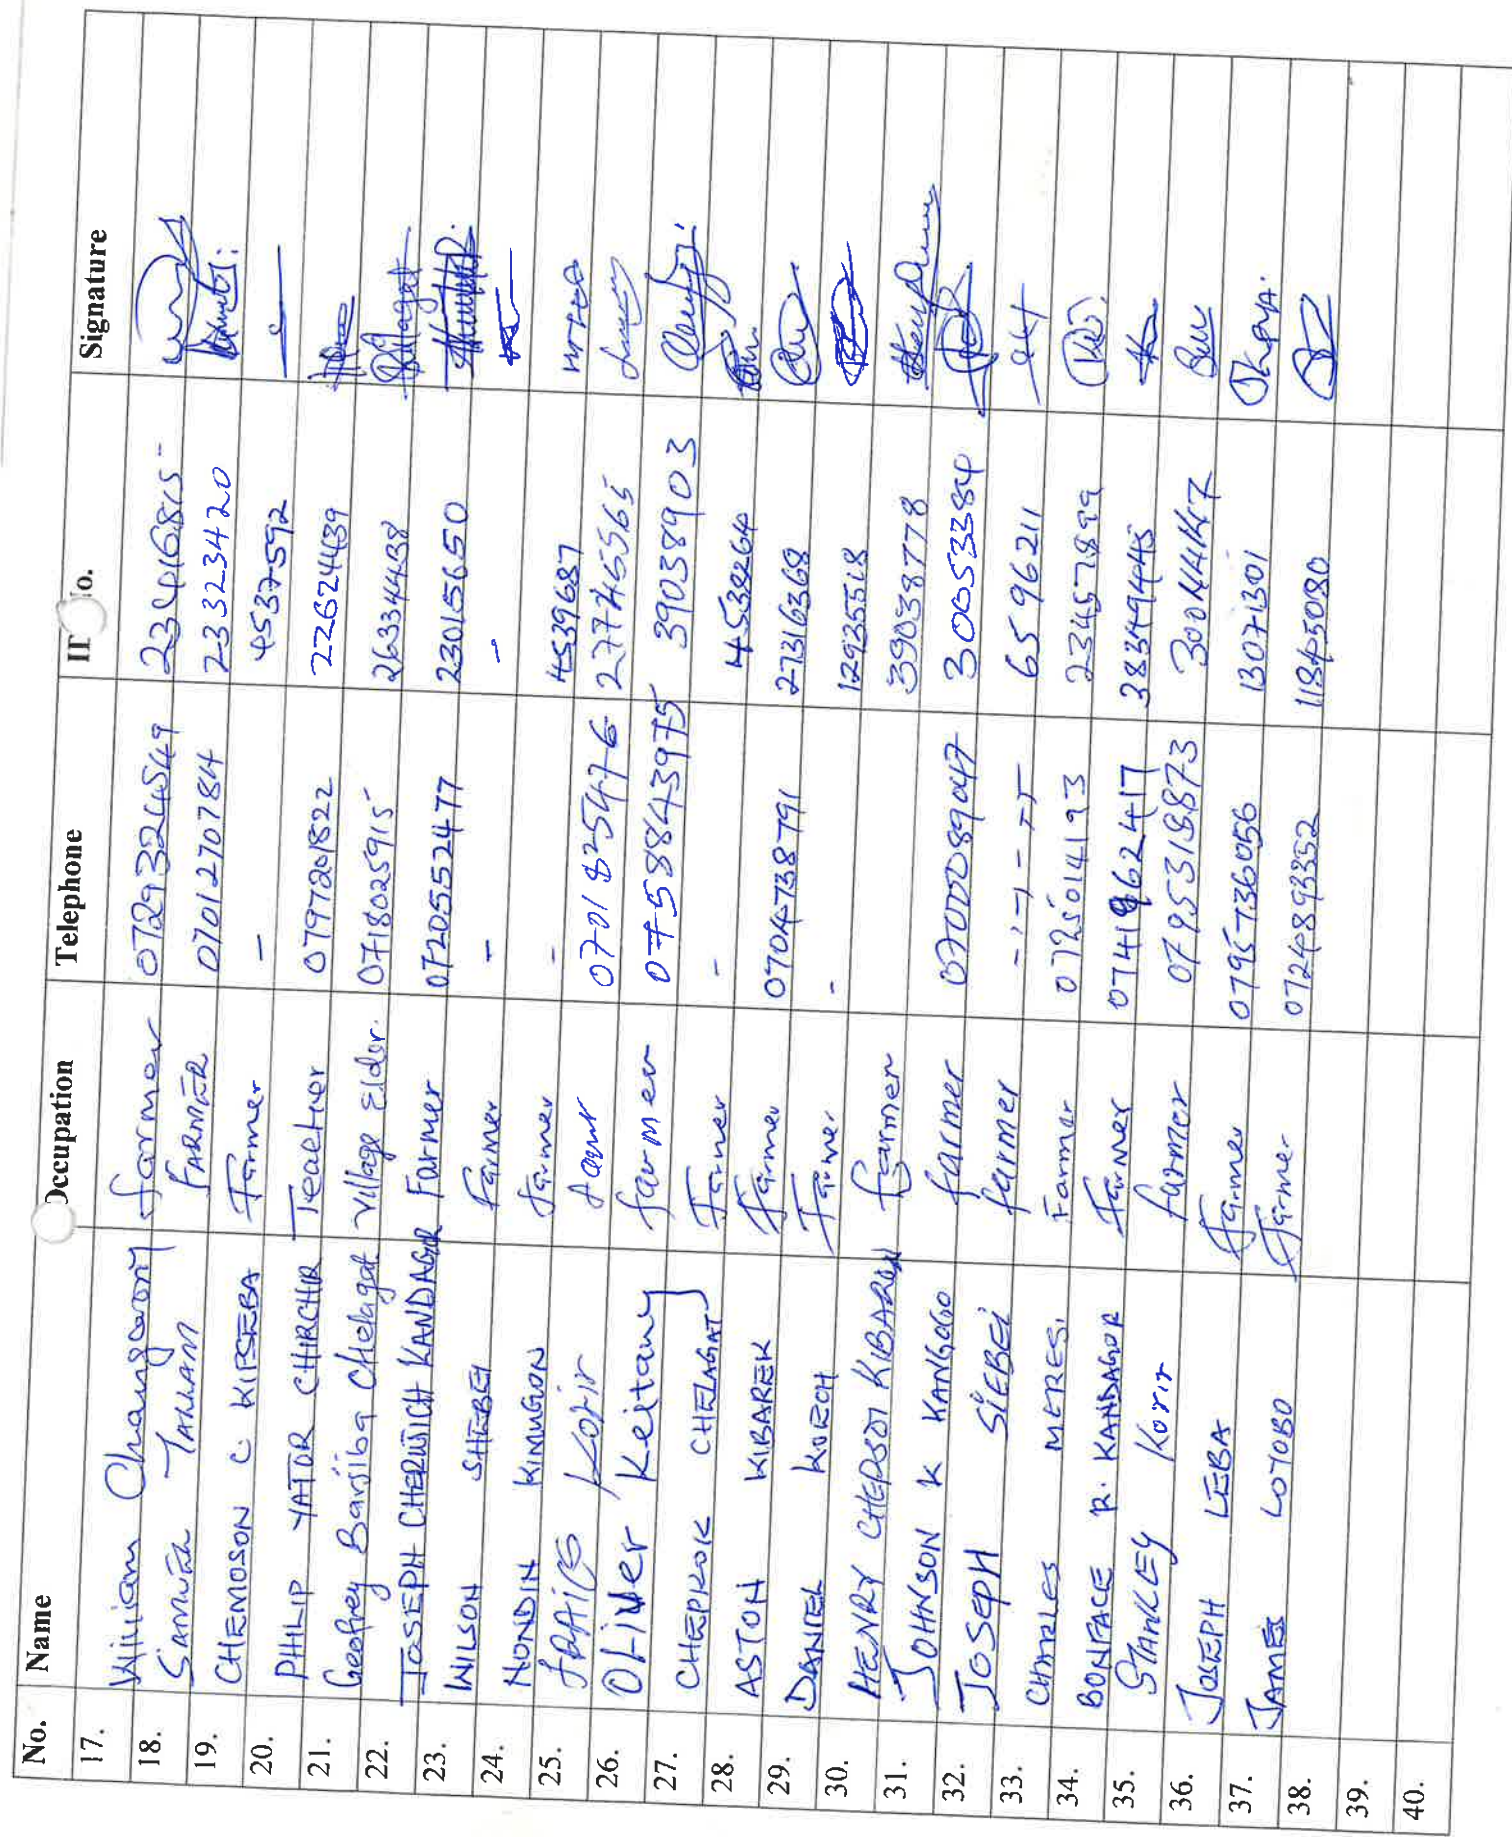 No. Name Occupation Telephone ID No. Signature
17. William Changwony farmer 0729324549 23416815
18. Samuel Tallam FARMER 0701270784 23323420
19. CHEMOSON C KIPSEBA Farmer - 4537592
20. PHILIP YATOR CHIRCHIR Teacher 0797201822 22624439
21. Geofrey Barjiba Chelagat Village Elder. 0718025915 26334438
22. JOSEPH CHERWICH KANDAGOR Farmer 0720552477 23015650
23. WILSON SHEBEI Farmer - -
24. NONDIN KIMUGON farmer - 4539687
25. Korir 0701825476 27746565
26. Oliver Keitany farmer 0758843975 39038903
27. CHEPKOK CHELAGAT Farmer - 4538264
28. ASTON KIBAREK Farmer 0704738791 27316368
29. DANIEL KOECH Farmer - 12935518
30. HENRY CHEPSOI farmer 39038778
31. JOHNSON K KANGOGO farmer 0700089047 30053384
32. JOSEPH SIEBEI farmer 6596211
33. CHARLES MERESI Farmer 0725014193 23457899
34. BONFACE R. KANDAGOR Farmer 38349445
35. STANKLEY Korir farmer 0795318873
36. JOSEPH LEBA farmer 0795736056 13071301
37. JAMES LOTOBO farmer 0724893352 11845080
38.
39.
40.